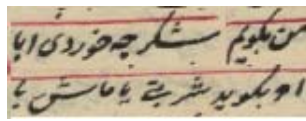 من بگویم شکر چه خوردی ابا
او بگوید شربتی یا ماش با